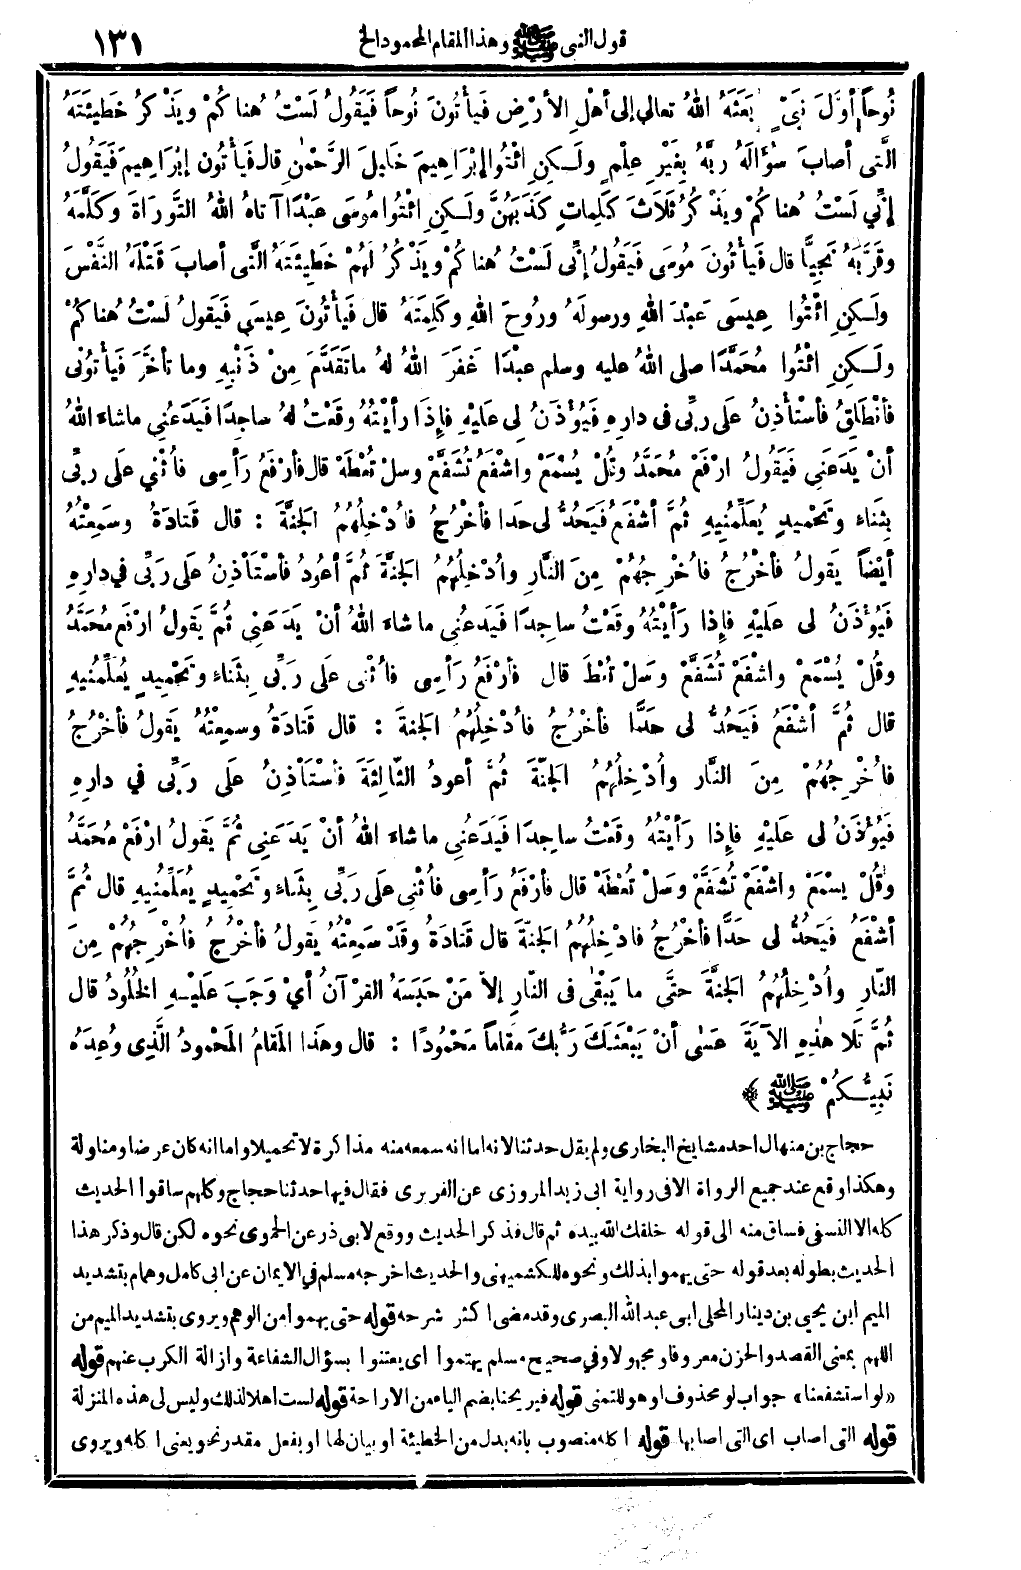 قول النبى ﷺ وهذا المقام المحمود الخ ١٣١
نُوحاً أوَّلَ نَبِىٍّ بَعَثَهُ اللهُ تعالى إلى أهْلِ الأرْضِ فَيأْتُونَ نُوحاً فَيَقُولُ لَسْتُ هُنا كُمْ ويَذْ كرُ خَطِيئَتَهُ
الَّتى أصابَ سُؤَالَهُ ربَّهُ بِغَيْرِ عِلْمٍ ولَـكِنِ ائْتُوا إبْرَاهِيمَ خَلِيلَ الرَّحْمٰنِ قال فَيأْتُون إبْرَاهِيمَ فَيَقُولُ
إنِّي لَسْتُ هُنا كُمْ ويَذْ كُرُ ثَلَاثَ كَلِماتٍ كَذَبَهُنَّ ولَـكِنِ ائْتُوا مُوسَى عَبْدًا آتاهُ اللهُ التَّوْرَاةَ وكَلَّمَهُ
وقَرَّبَهُ نَجِيًّا قال فَيأْتُونَ مُوسَى فَيَقُولُ إنِّى لَسْتُ هُنا كُمْ ويَذْكُرُ لَهُمْ خَطِيئَتَهُ الَّتى أصابَ قَتْلَهُ النَّفْسَ
ولَـكِنِ ائْتُوا عِيسَى عَبْدَ اللهِ ورسولَهُ ورُوحَ اللهِ وكَلِمَتَهُ قال فَيأْتُونَ عِيسَى فَيَقُولُ لَسْتُ هُنا كُمْ
ولَـكِنِ ائْتُوا مُحَمَّدًا صلى اللهُ عليه وسلم عبْدًا غَفَرَ اللهُ لهُ ماتَقَدَّمَ مِنْ ذَنْبِهِ وما تأخَّرَ فَيأْتُونِى
فأنْطَلِقُ فأسْتأْذِنُ عَلَى ربِّى فى دارِهِ فَيُؤْذَنُ لِى عَلَيْهِ فإذَا رأيْتُهُ وقَعْتُ لهُ ساجِدًا فَيَدَعُنِى ماشاءَ اللهُ
أنْ يَدَعَنِى فَيَقُولُ ارْفَعْ مُحَمَّدُ وقُلْ يُسْمَعْ واشْفَعْ تُشَفَّعْ وسَلْ تُعْطَهْ قال فأرْفَعُ رَأسِى فأُثْنِي عَلَى ربِّى
بِثَناءٍ وتَحْمِيدٍ يُعَلِّمُنِيهِ ثُمَّ أشْفَعُ فَيَحُدُّ لِى حَدا فأخْرُجُ فأُدْخِلُهُمُ الجَنَّةَ : قال قَتادَةُ وسَمِعْتُهُ
أيْضاً يَقُولُ فأخْرُجُ فأُخْرِجُهُمْ مِنَ النَّارِ وأُدْخِلُهُمُ الجَنَّةَ ثُمَّ أعُودُ فأسْتَأذِنُ عَلَى رَبِّى فى دارِهِ
فَيُؤْذَنُ لِى عَلَيْهِ فإذا رَأيْتُهُ وقَعْتُ ساجِدًا فَيَدَعُنِى ما شاءَ اللهُ أنْ يَدَعَنِى ثُمَّ يَقُولُ ارْفَعْ مُحَمَّدُ
وقُلْ يُسْمَعْ واشْفَعْ تُشَفَّعْ وسَلْ تُعْطَ قال فأرْفَعُ رَأسِى فأُثْنِى عَلَى رَبِّى بِثَناءٍ وتَحْمِيدٍ يُعَلِّمُنِيهِ
قال ثُمَّ أشْفَعُ فَيَحُدُّ لى حَدًّا فأخْرُجُ فأُدْخِلُهُمُ الجَنةَ : قال قَتادَةُ وسمِعْتُهُ يَقُولُ فأخْرُجُ
فأُخْرِجُهُمْ مِنَ النَّارِ وأُدْخِلُهُمُ الجَنّةَ ثُمَّ أعودُ الثّالِثَةَ فأسْتَأذِنُ عَلَى رَبِّى فى دارِهِ
فَيُؤْذَنُ لى عَلَيْهِ فإذا رَأيْتُهُ وقَعْتُ ساجِدًا فَيَدَعُنِى ماشاءَ اللهُ أنْ يَدَعَنِى ثُمَّ يَقُولُ ارْفَعْ مُحَمَّدُ
وقُلْ يسْمَعْ واشْفَعْ تُشَفَّعْ وسَلْ تُعْطَهْ قال فأرْفَعُ رَأسِى فأُثْنِى عَلَى رَبِّى بِثَناءٍ وتَحْمِيدٍ يُعَلِّمُنِيهِ قال ثُمَّ
أشْفَعُ فَيَحُدُّ لى حَدًّا فأخْرُجُ فادْخِلُهُمُ الجَنّةَ قال قَتادَةُ وقَدْ سَمِعْتُهُ يَقُولُ فأخْرُجُ فأُخْرِجُهُمْ مِنَ
النّارِ وأُدْخِلُهُمُ الجَنةَ حتَّى ما يَبْقٰى فى النّارِ إلاّ مَنْ حَبَسَهُ القرْآنُ أىْ وَجَبَ عَلَيْـهِ الخُلُودُ قال
ثُمَّ تَلَا هٰذِهِ الآيَةَ عَسٰى أنْ يَبْعَثَـكَ رَبُّكَ مَقاماً مَحْمُودًا : قال وهٰذا المَقامُ المَحْمودُ الَّذِى وُعِدَهُ
نَبِيُّـكُمْ ﷺ ﴾
حجاج بن منهال احد مشايخ البخارى ولم يقل حدثنا لانه اما انه سمعه منه مذاكرة لا تحميلا واما انه كان عرضا ومناولة
وهكذا وقع عند جميع الرواة الا فى رواية ابى زيد المروزى عن الفربرى فقال فيها حدثنا حجاج وكلهم ساقوا الحديث
كله الا النسفى فساق منه الى قوله خلقك الله بيده ثم قال فذكر الحديث ووقع لابى ذر عن الحموى نحوه لكن قال وذكر هذا
الحديث بطوله بعد قوله حتى يهموا بذلك ونحوه للكشميهنى والحديث اخرجه مسلم فى الايمان عن ابى كامل وهمام بتشديد
الميم ابن يحيى بن دينار المحلى ابى عبد الله البصرى وقد مضى اكثر شرحه قوله حتى يهموا من الوهم ويروى بتشديد الميم من
اللهم بمعنى القصد والحزن معروفا ومجهولا وفى صحيح مسلم يهتموا اى يعتنوا بسؤال الشفاعة وازالة الكرب عنهم قوله
«لو استشفعنا» جواب لو محذوف او هو للتمنى قوله فيريحنا بضم الياء من الاراحة قوله لست اهلا لذلك وليس لى هذه المنزلة
قوله التى اصاب اى التى اصابها قوله اكله منصوب بانه بدل من الخطيئة او بيان لها او بفعل مقدر نحو يعنى اكله ويروى